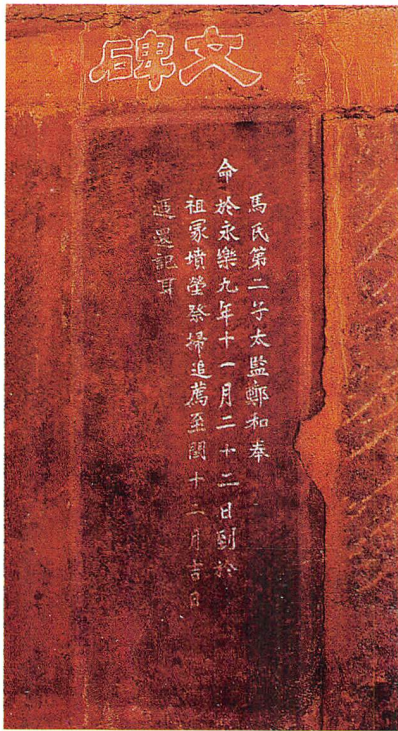 碑文
馬氏第二子太監鄭和奉
命於永樂九年十一月二十二日到於
祖冢墳塋祭掃追薦至閏十二月吉日
迺還記耳